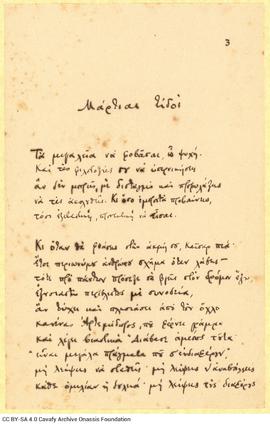 3
Μάρτιαι Ειδοί
Τα μεγαλεία να φοβάσαι, ω ψυχή.
Και τες φιλοδοξίες σου να υπερνικήσεις
αν δεν μπορείς, με δισταγμό και προφυλάξεις
να τες ακολουθείς. Κι όσο εμπροστά προβαίνεις,
τόσο εξεταστική, προσεκτική να είσαι.
Κι όταν θα φθάσεις στην ακμή σου, Καίσαρ πια·
έτσι περιωνύμου ανθρώπου σχήμα όταν λάβεις—
τότε προ πάντων πρόσεξε σα βγεις στον δρόμον έξω,
εξουσιαστής περίβλεπτος με συνοδεία,
αν τύχει και πλησιάσει από τον όχλο
κανένας Αρτεμίδωρος, που φέρνει γράμμα
και λέγει βιαστικά «Διάβασε αμέσως τούτα
είναι μεγάλα πράγματα που σ' ενδιαφέρουν,»
μη λείψεις να σταθείς· μη λείψεις ν' αναβάλεις
κάθε ομιλίαν ή δουλειά· μη λείψεις τους διαφόρους
CC BY-SA 4.0 Cavafy Archive Onassis Foundation